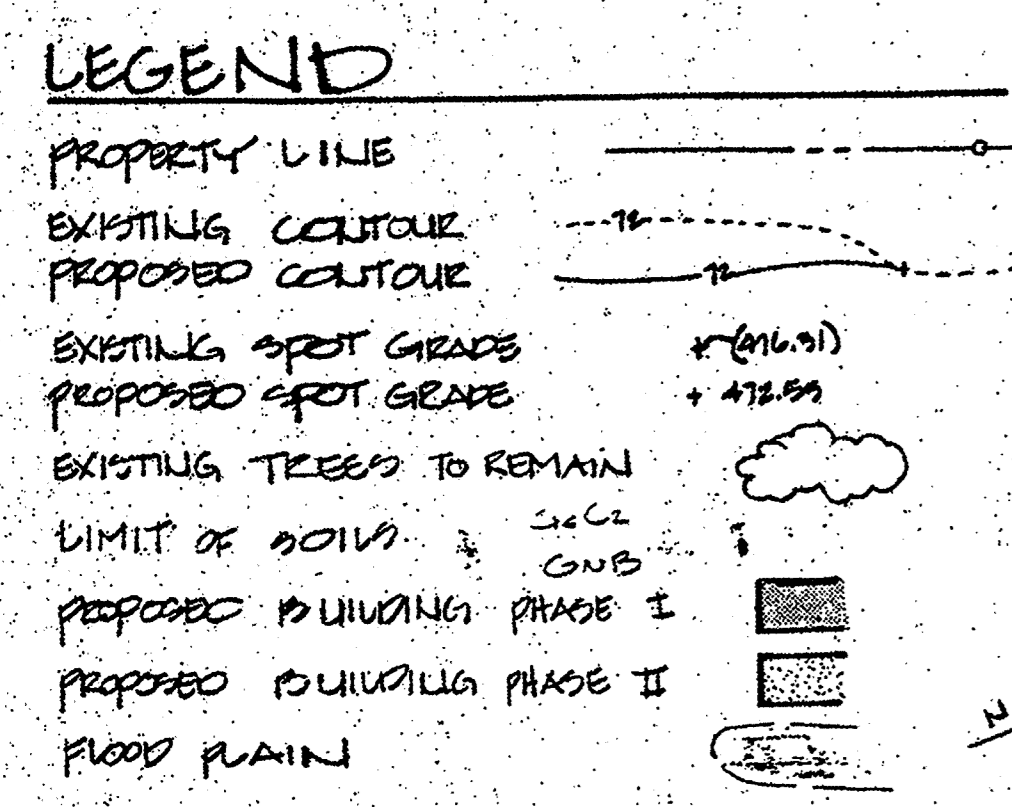 LEGEND
PROPERTY LINE
EXISTING CONTOUR 72
PROPOSED CONTOUR 72
EXISTING SPOT GRADE + (476.31)
PROPOSED SPOT GRADE + 472.55
EXISTING TREES TO REMAIN
LIMIT OF SOILS
GNB
PROPOSED BUILDING PHASE I
PROPOSED BUILDING PHASE II
FLOOD PLAIN